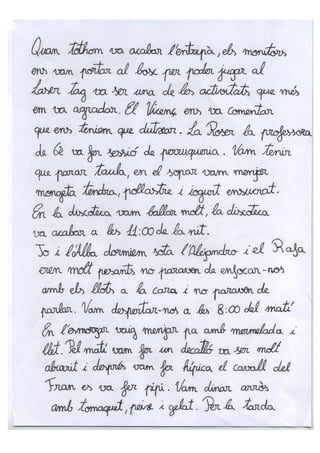 Quan tothom va acabar l'entrepà, els monitors
ens van portar al bosc per poder jugar al
Laser tag va ser una de les activitats que més
em va agradar. El Vicenç ens va comentar
que ens teniem que dutxar. La Roser la professora
de 6è va fer sessió de perruqueria. Vam tenir
que parar taula, en el sopar vam menjar
mongeta tendra, pollastre i iogurt ensucrat.
En la discoteca vam ballar molt, la discoteca
va acabar a les 11:00 de la nit.
Jo i l'Alba dormiem sota l'Alejandro i el Rafa
eren molt pesants no paraven de enfocar-nos
amb els llots a la cara i no paraven de
parlar. Vam despertar-nos a les 8:00 del matí
En l'esmorzar vaig menjar pa amb mermelada i
llet. Pel matí vam fer un decatló va ser molt
aburit i després vam fer hípica el cavall del
Fran es va fer pipi. Vam dinar arròs
amb tomaquet, peix i gelat. Per la tarda